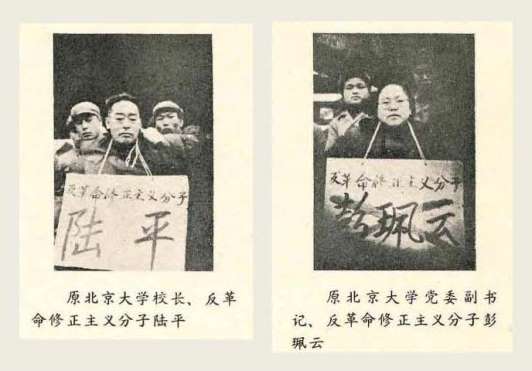 反革命修正主义分子
陆平
原北京大学校长、反革
命修正主义分子陆平
反革命修正主义分子
彭珮云
原北京大学党委副书
记、反革命修正主义分子彭
珮云